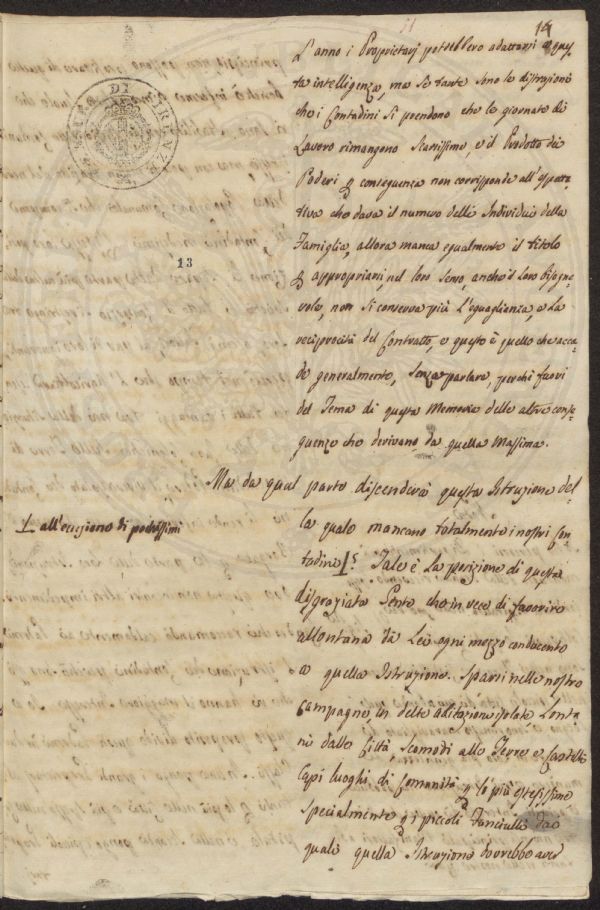 11 14
L'anno i Proprietarj potrebbero adattarsi a ques-
ta intelligenza, ma se tante sono le distrazioni
che i Contadini si prendono che le giornate di
Lavoro rimangono Scarsissime, e il Prodotto dei
Poderi p conseguenza non corrisponde all'espetta-
tiva che dava il numero delli Individui della
Famiglia, allora manca egualmente il titolo
p appropriarsi, nel loro Senso, anche il Loro bisogne-
vole, non si conserva più L'eguaglianza, e La
reciprocità del Contratto, e questo è quello che acca-
de generalmente, Senza parlare, perchè fuori
del Tema di questa Memoria delle altre conse-
guenze che derivano da quella Massima.
Ma da qual parte discenderà questa Istruzione del-
la quale mancano totalmente i nostri Con-
tadini? Tale è La posizione di questa
disgraziata Gente che in vece di favorire
allontana da Lei ogni mezzo conducente
a quella Istruzione. Sparsi nelle nostre
Campagne, in delle abitazioni isolate Lonta-
ni dalle Città, Scomodi alle Terre e Castelli
Capi luoghi di Comunità p lo più estesissime
Specialmente p i piccoli Fanciulli dai
quali quella Istruzione dovrebbe aver
all'eccezione di pochissimi
DI FIRENZE
13